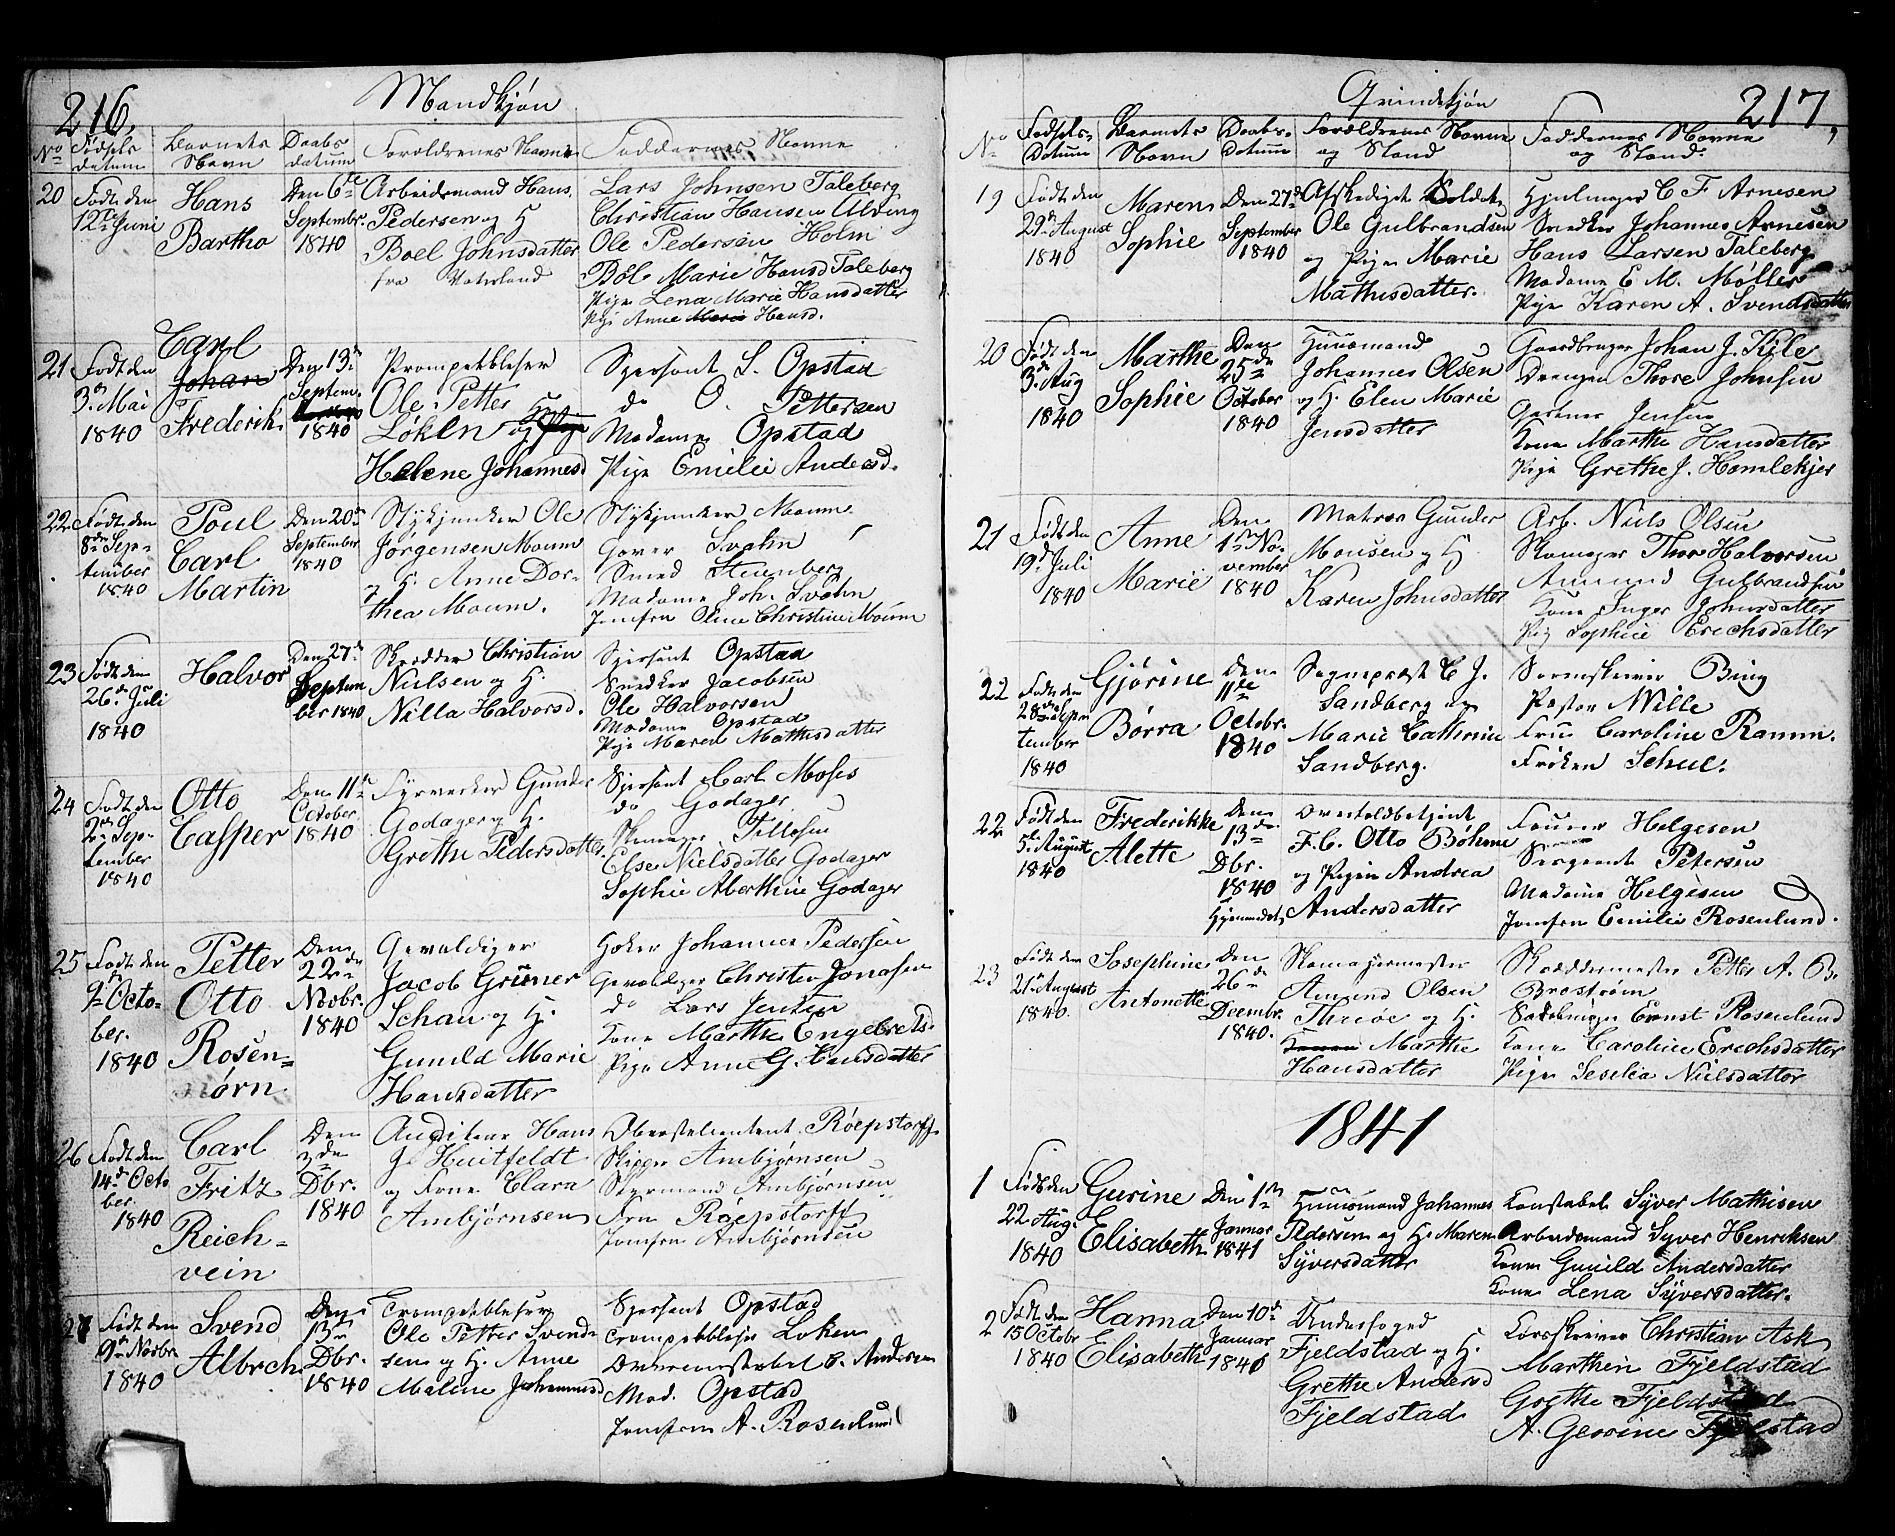 216.
Mandkjøn
No
Fødsels datum
Barnets Navn
Daabs datum
Forældrenes Navne
Faddernes Navne
20
Født den
12te Juni
Hans
Bartho
Den 6te
Septembr.
1840
Arbeidsmand Hans
Pedersen og H.
Boel Johnsdatter
fra Vaterland
Lars Johnsen Taleberg
Christian Hansen Ulving
Ole Pedersen Holm
Marie Hansd Taleberg
Pige Lena Marie Hansdatter
Pige Anne Marie Hansd.
21
Født den
3de Mai
1840
Carl
Johan
Frederik
Den 13de
Septem.
1840
Trompetblæser
Ole Petter
Løken og
Helene Johannesd
Sjersant S. Opstad
do O. Pettersen
Madame Opstad
Pige Emilie Andersd.
22
Født den
8de Sep-
tember
1840
Poul
Carl
Martin
Den 20de
September
1840
Stykjunker Ole
Jørgensen Moum
og H. Anne Dor-
thea Moum.
Stykjunker Moum
Svahn
Smed Steenberg
Madame Joh. Svahn
Jomfru Oline Christine Moum
23
Født den
26de Juli
1840
Halvor
Den 27de
Septem
ber 1840
Skrædder Christian
Nielsen og H.
Nilla Halvorsd.
Sjersant Opstad
Snedker Jacobsen
Ole Halvorsen
Madame Opstad
Pige Maren Mathisdatter
24
Født den
2den Sep-
tember
1840
Otto
Casper
Den 11te
October
1840
Fyrverker Gunder
Godager og H.
Grethe Pedersdatter
Sjersant Carl Moses
do Godager
Skomager Tillesen
Else Nielsdatter Godager
Sophie Aberthine Godager
25
Født den
9de Octo-
ber.
1840
Petter
Otto
Rosen-
ørn
Den
22de
Novbr.
1840
Gevaldiger
Jacob Griner
Schau og H.
Gunild Marie
Hansdatter
Høker Johannes Pedersen
Gevaldiger Christen Jonasen
do Lars Jensen
Kone Marthe Engebretsd.
Pige Anne G. Hansdatter
26
Født den
14de Octo
ber.
1840
Carl
Fritz
Reich-
vein
Den
2den
Dbr.
1840
Auditeur Hans
J. Huitfeldt
og Frue Clara
Ambjørnsen
Oberstlieutent. Røepstorff
Skipper Ambjørnsen
Styrmand Ambjørnsen
Fru Røepstorff
Jomfru Ambjørnsen
27
Født den
9de Novbr.
1840
Svend
Albrch
Den
13de
Dbr.
1840
Trompetblæser
Ole Petter Svend-
sen og H. Anne
Maline Johannesd
Sjersant Opstad
Trompetblæser Loken
Overconstabel C. Andersen
Mad. Opstad
Jomfru A. Rosenlund
217.
Qvindekjøn
No
Fødsels-
Datum
Barnets
Navn
Daabs-
Datum
Forældrenes Navne
og Stand
Faddernes Navne
og Stand.
19
Født den
29de August
1840
Maren
Sophie
Den 27de
September
1840
Afskediget Soldat
Ole Gulbrandsen
og Pige Marie
Mathisdatter.
Hjulmager C F Arnesen
Snedker Johannes Arnesen
Hans Larsen Taleberg
Madame E. M. Møller
Pige Karen A. Svendsdatter
20
Født den
3de Aug
1840
Marthe
Sophie
Den
25de
October
1840
Huusmand
Johannes Olsen
og H. Elen Marie
Jensdatter
Gaardbruger Johan J. Kjile
Drengen Thore Johnsen
Gartner Jensen
Kone Marthe Hansdatter
Pige Grethe J. Homlekjer
21
Født den
19de Juli
1840
Anne
Marie
Den
1ste No-
vember
1840
Matros Gunder
Monsen og H.
Karen Johnsdatter
Arb. Niels Olsen
Skomager Thor Halvorsen
Amund Gulbrandsen
Kone Inger Johnsdatter
Pig Sophie Erichsdatter
22
Født den
28de Sep
tember
1840
Gjørine
Børra
Den
11te
Octobr.
1840
Sognepræst C J.
Sandberg og
Marie Cathrine
Sandberg.
Sorenskriver Bing
Pastor Wille
Frue Caroline Ramm.
Frøken Schul.
22
Født den
5te August
1840
Frederikke
Alette
Den
13de
Dbr.
1840
Hjemmedøbt
Overtoldbetjent
F. C. Otto Bøhme
og Pigen Andrea
Andersdatter
Fourer Helgesen
Sergeant Petersen
Madame Helgesen
Jomfru Emilie Rosenlund.
23
Født den
21de August
1840.
Josephine
Antonette
Den
26de
Decembr.
1840.
Skomagermester
Amund Olsen
og H.
Marthe
Hansdatter
Skræddermester Petter A. B.
Brostrøm
Sadelmager Ernst Rosenlund
Kone Caroline Erichsdatter
Pige Seselia Nielsdatter
1841
1
Født den
22 Aug.
1840
Gurine
Elisabeth
Den 1ste
Januar
1841
Huusmand Johannes
Pedersen og H. Maren
Syversdatter
Konstabel Syver Mathisen
Arbeidsmand Syver Henriksen
Kone Gunild Andersdatter
Kone Lena Syversdatter.
2
Født den
15 Octobr
1840
Hanna
Elisabeth
Den 10de
Januar
1840
Underfoged
Fjeldstad og H.
Grethe Andersd
Fjeldstad
Torskriver Christian Ask
Marthin Fjeldstad
Grethe Fjeldstad
A. Gesrine Fjelstad